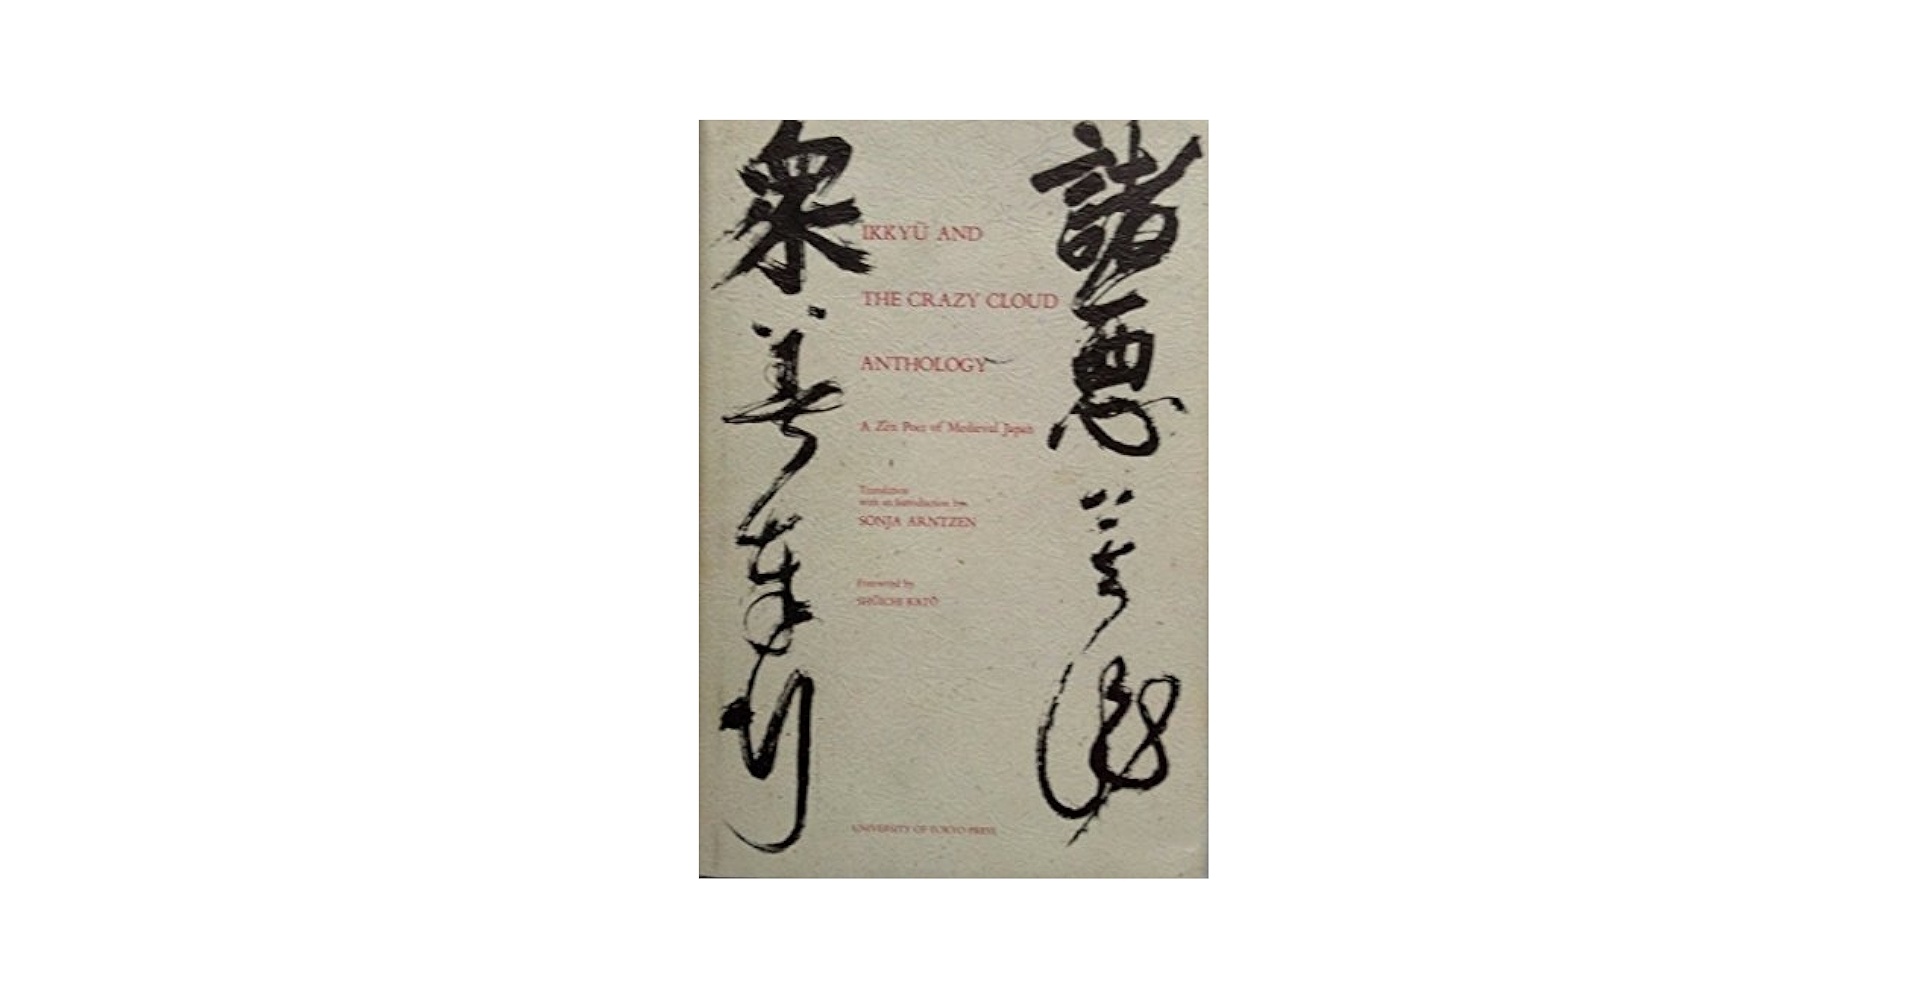 諸悪莫作
衆善奉行
IKKYŪ AND
THE CRAZY CLOUD
ANTHOLOGY
A Zen Poet of Medieval Japan
Translation
with an Introduction by
SONJA ARNTZEN
Foreword by
SHŪICHI KATŌ
UNIVERSITY OF TOKYO PRESS